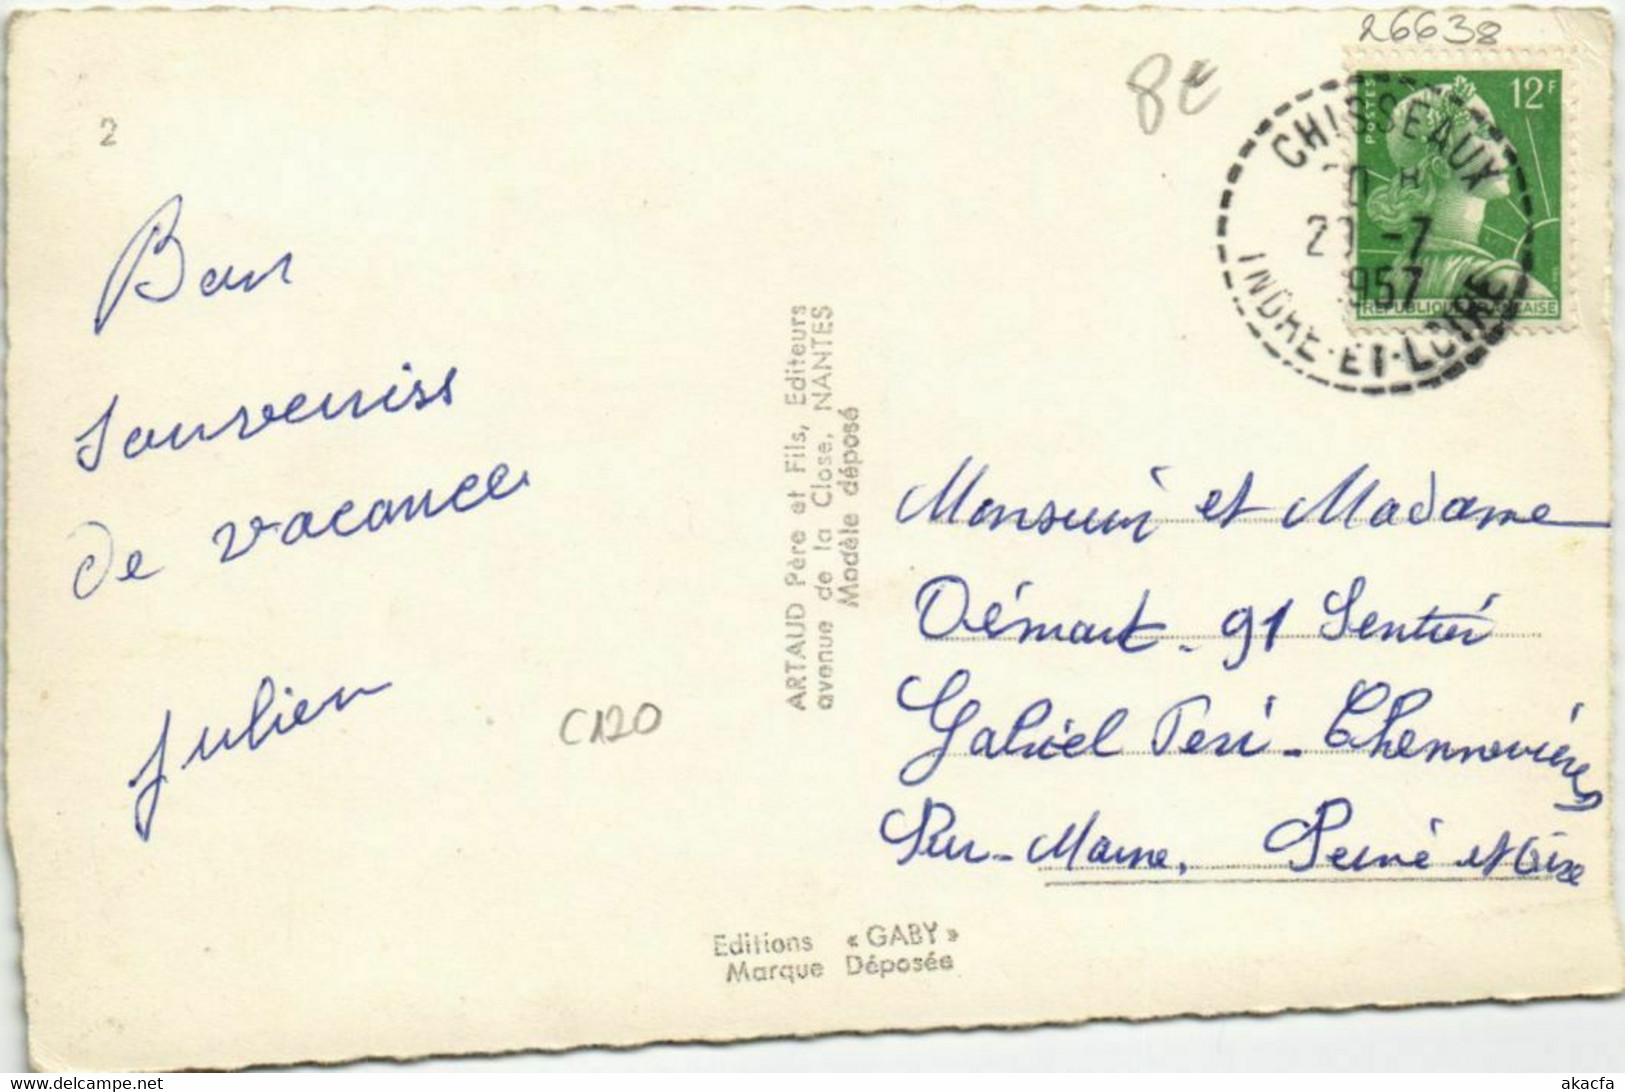 26638
8€
2
POSTES
12F
CHISSEAUX
-7
957
INDRE-ET-LOIRE
Bon
souveniss
de vacance
Julien
C120
ARTAUD Père et Fils, Editeurs
avenue de la Close, NANTES
Modèle déposé
Monsieur et Madame
Démart - 91 Sentier
Gabriel Peri - Chennevières
Sur-Marne, Seine et Oise
Editions « GABY »
Marque Déposée
akacfa